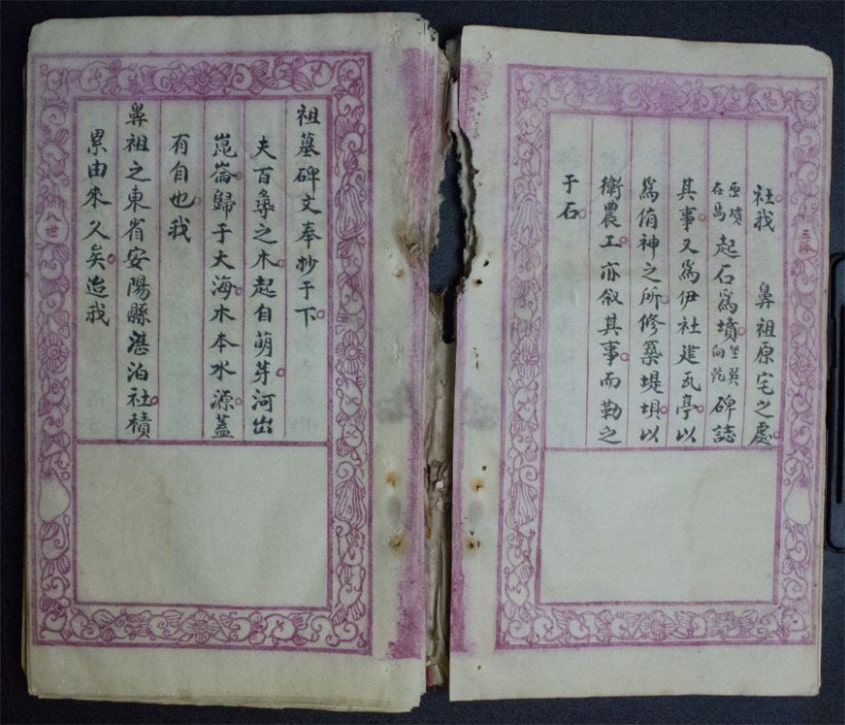 三派
社我 鼻祖原宅之處
墳在焉起石爲墳坐巽向乾碑誌
其事又爲伊社建瓦亭以
爲侑神之所修築堤垻以
衛農工亦叙其事而勒之
于石
祖墓碑文奉抄于下
夫百尋之木起自萌芽河出
崑崙歸于大海木本水源蓋
有自也我
鼻祖之東省安陽縣湛泊社積
累由來久矣迨我
八世